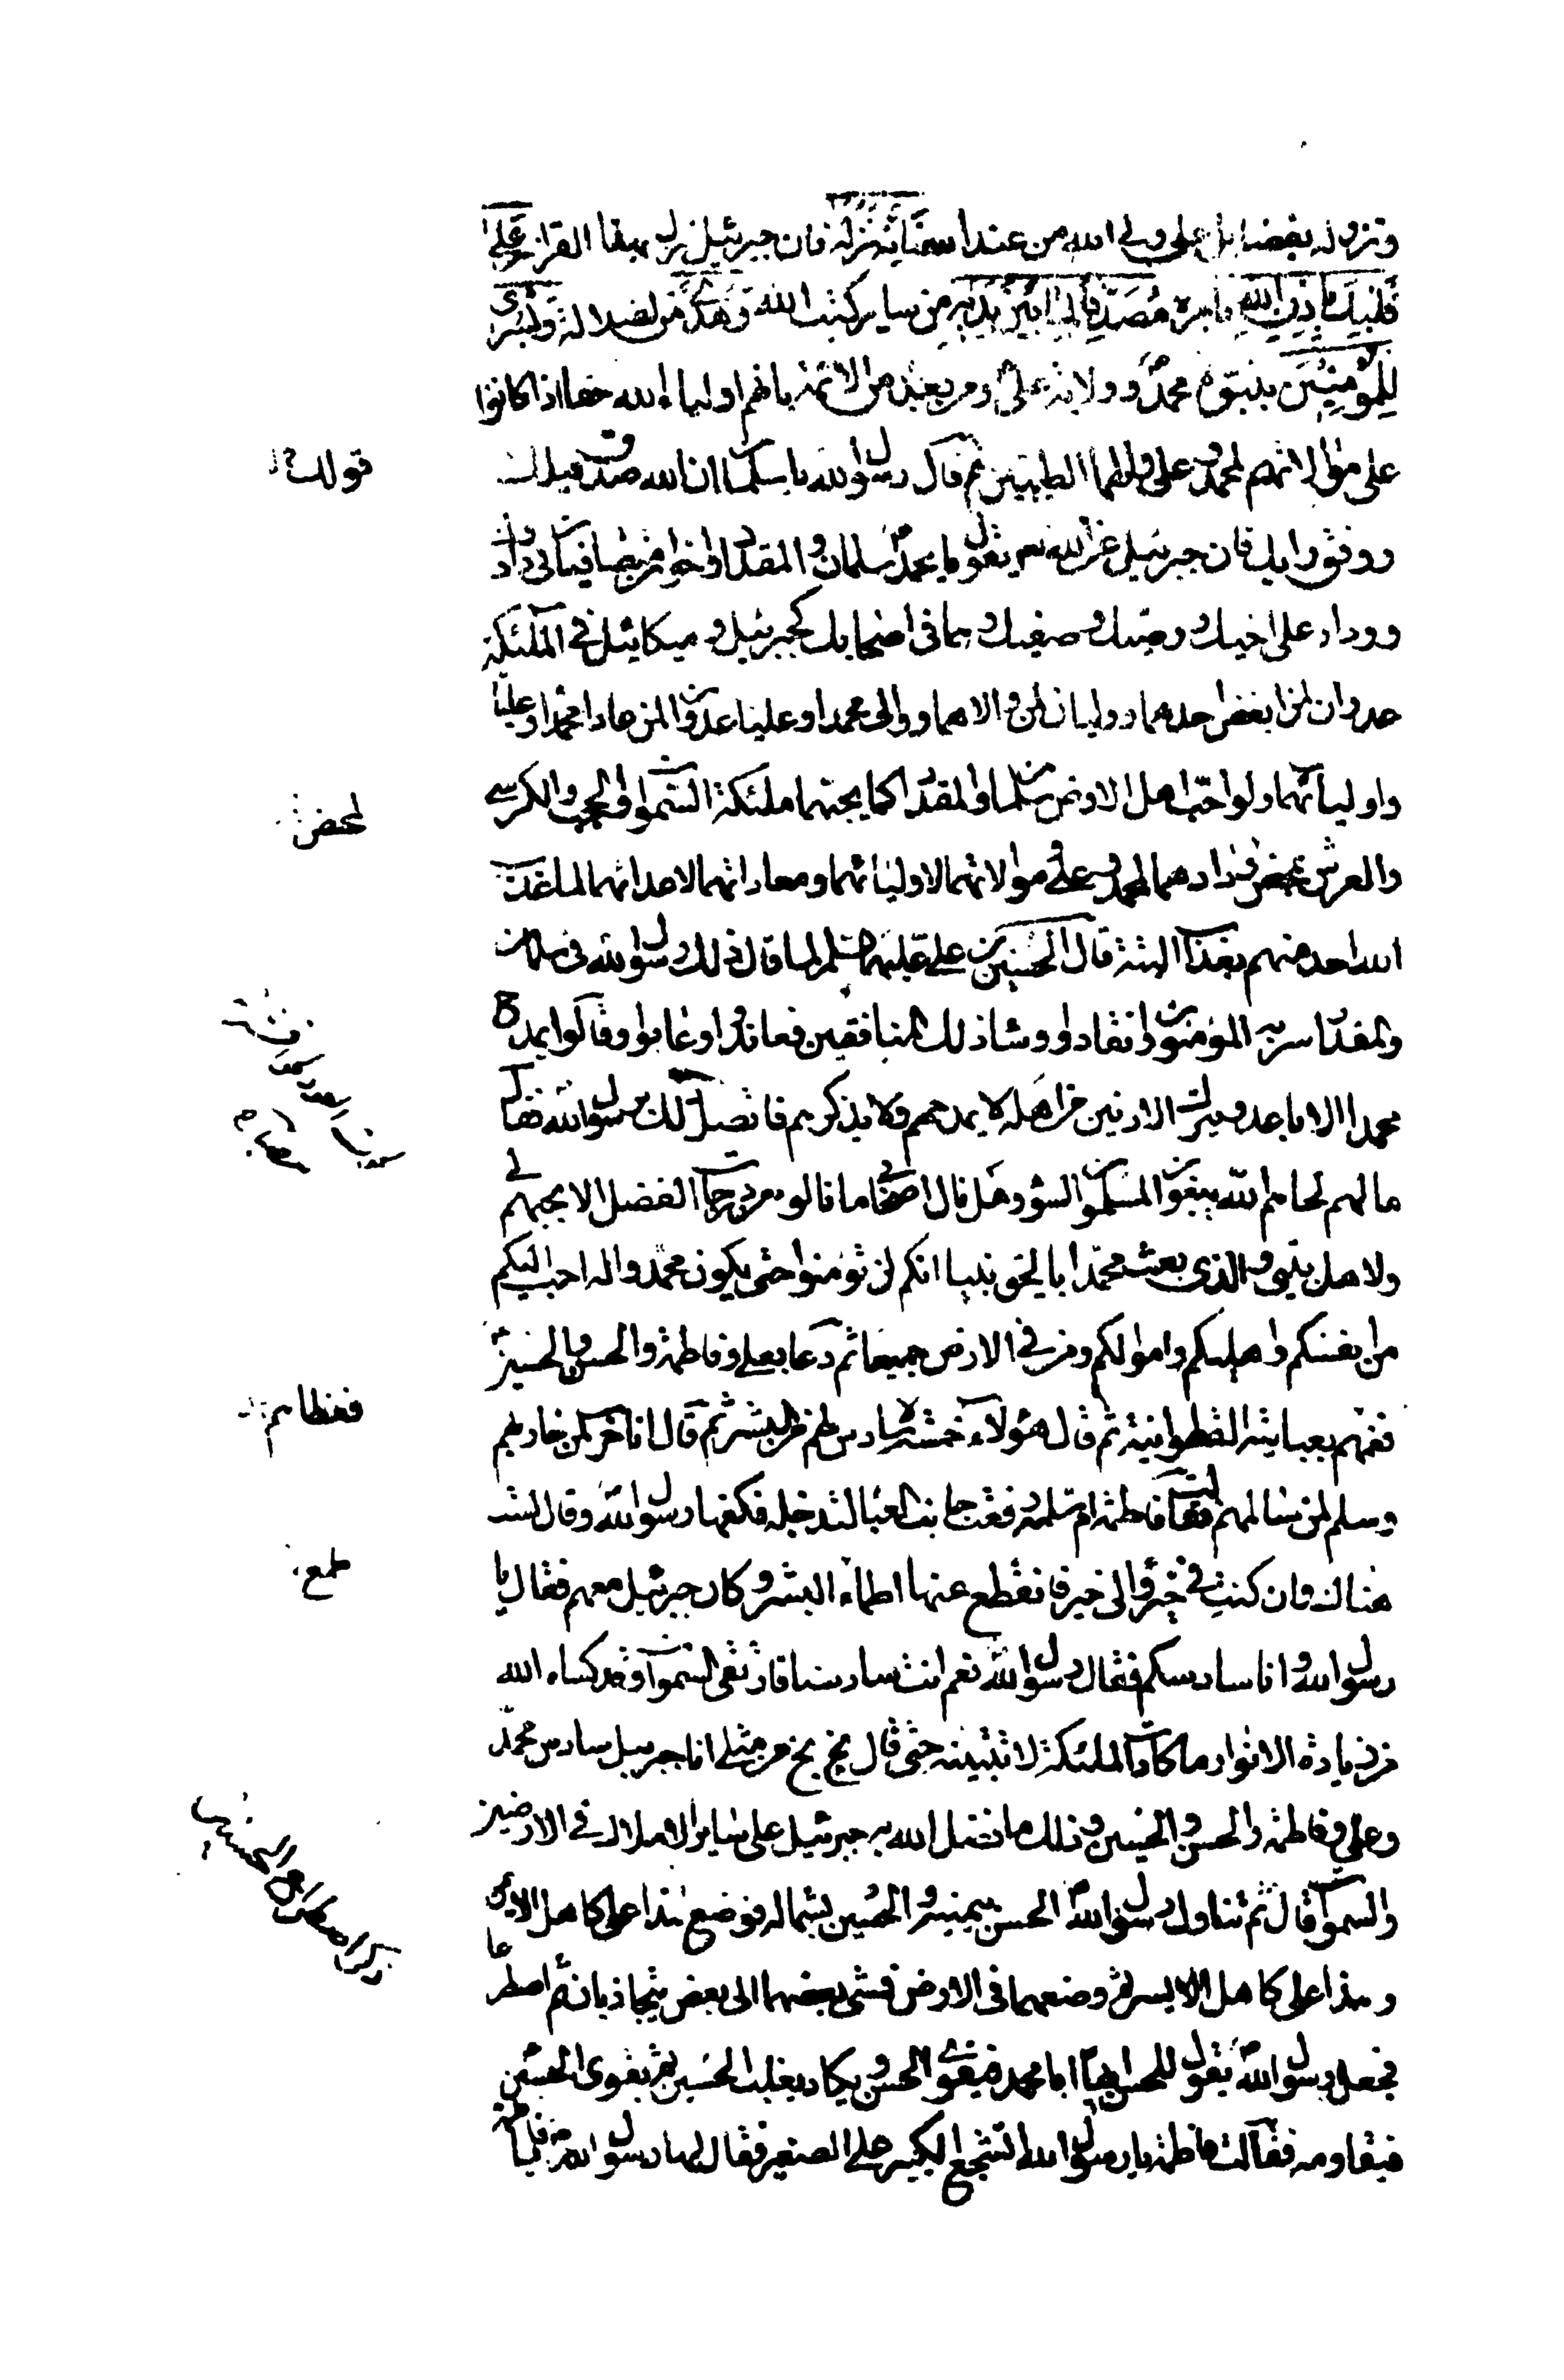 ونزوله بفضايل علي ولي الله من عند الله فانه نزله فان جبرئيل نزل بهذا القران على
قلبك باذن الله بامره مصدقا لما بين يديه من ساير كتب الله وهدى من الضلالة وبشرى
للمؤمنين بنبوة محمد وولاية علي ومن بعده من الائمة بانهم اولياء الله حقا اذا كانوا
على موالاتهم لمحمد وعلي والهما الطيبين ثم قال رسول الله يا سلمان ان الله صدق قيلك
ووفق رايك فان جبرئيل عن الله تعالى يقول يا محمد سلمان والمقداد اخوان متصافيان في ودادك
ووداد علي اخيك ووصيك وصفيك وهما في اصحابك كجبرئيل وميكائيل في الملئكة
عدوان لمن ابغض احدهما ووليان لمن والاهما ووالى محمدا وعليا عدوان لمن عادا محمدا وعليا
واوليائهما ولو احب اهل الارض سلمان والمقداد كما يحبهما ملئكة السموات والحجب والكرسي
والعرش لمحض ودادهما لمحمد وعلي وموالاتهما لاوليائهما ومعاداتهما لاعدائهما لما عذب
الله احد منهم بعذاب البتة قال الحسين بن علي عليهما السلم لما قال ذلك رسول الله في سلمان
والمقداد سر به المؤمنون وانقادوا وساء ذلك المنافقين فعاندوا وعابوا وقالوا يمدح
محمدا الاباعد ويترك الادنين من اهله لا يمدحهم ولا يذكرهم فاتصل ذلك برسول الله فقال
ما لهم لحاهم الله يبغون للمسلمين السوء وهل نال اصحابي ما نالوه من درجات الفضل الا بحبهم لي
ولاهل بيتي والذي بعث محمدا بالحق نبيا انكم لن تؤمنوا حتى يكون محمد واله احب اليكم
من انفسكم واهليكم واموالكم ومن في الارض جميعا ثم دعا بعلي وفاطمة والحسن والحسين
فغمهم بعبايته القطوانية ثم قال هؤلاء خمسة لا سادس لهم من البشر ثم قال انا حرب لمن حاربهم
وسلم لمن سالمهم فقامت ام سلمة فرفعت جانب العبا لتدخله فكفها رسول الله وقال لست
هناك وان كنت في خير والى خير فانقطع عنها اطماع البشر وكان جبرئيل معهم فقال يا
رسول الله وانا سادسكم فقال رسول الله نعم انت سادسنا فارتقى السموات وقد كساه الله
من زيادة الانوار ما كادت الملئكة لا تتبينه حتى قال بخ بخ من مثلي انا جبرئيل سادس محمد
وعلي وفاطمة والحسن والحسين وذلك ما فضل الله به جبرئيل على ساير الاملاك في الارضين
والسموات قال ثم تناول رسول الله الحسن بيمينه والحسين بشماله فوضع هذا على كاهله الايمن
وهذا على كاهله الايسر ثم وضعهما في الارض فمشى بعضهما الى بعض يتجاذبان ثم اصطرعا
فجعل رسول الله يقول للحسن ايها ابا محمد فيقوى الحسن ويكاد يغلب الحسين ثم يقوى الحسين
فيقاومه فقالت فاطمة يا رسول الله اتشجع الكبير على الصغير فقال لها رسول الله يا فاطمة
قولك
لمحض
فغطاهم
طمع